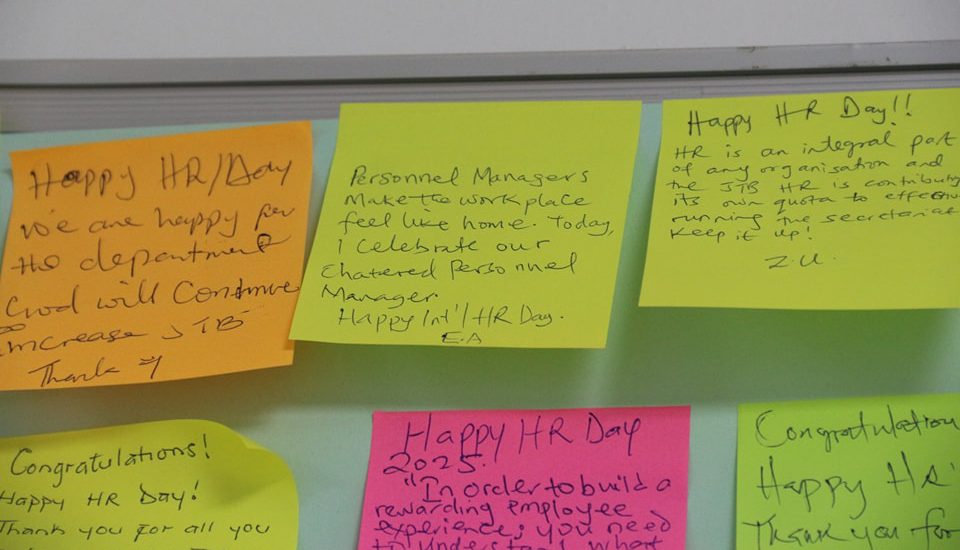 Happy HR/Day
We are happy for
the department
God will continue
to
increase JTB
Thank
Personnel Managers
Make the workplace
feel like home. Today,
I celebrate our
Chatered Personnel
Manager.
Happy Int'l HR Day.
E.A
Happy HR Day!!
HR is an integral part
of any organisation and
the JTB HR is contributing
its own quota to effective
running the secretariat
Keep it up!
Z.U.
Congratulations!
Happy HR Day!
Thank you for all you
Happy HR Day
2025.
"In order to build a
rewarding employee
experience, you need
to understand what
Congratulation
Happy HR
Thank you for